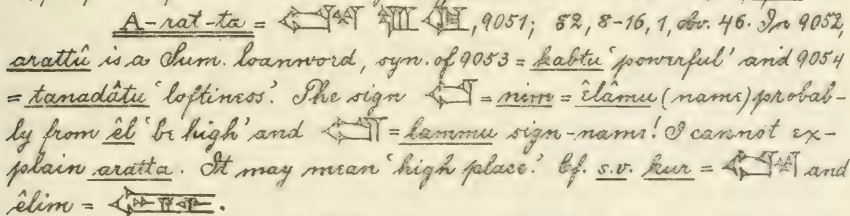 A-rat-ta = , 9051; 82, 8-16, 1, obv. 46. In 9052,
arattû is a Sum. loanword, syn. of 9053 = kabtu ‘powerful’ and 9054
= tanadâtu ‘loftiness’. The sign = nim = êlâmu (name) probab-
ly from êl ‘be high’ and = lammu sign-name! I cannot ex-
plain aratta. It may mean ‘high place.’ Cf. s.v. kur = and
êlim = .